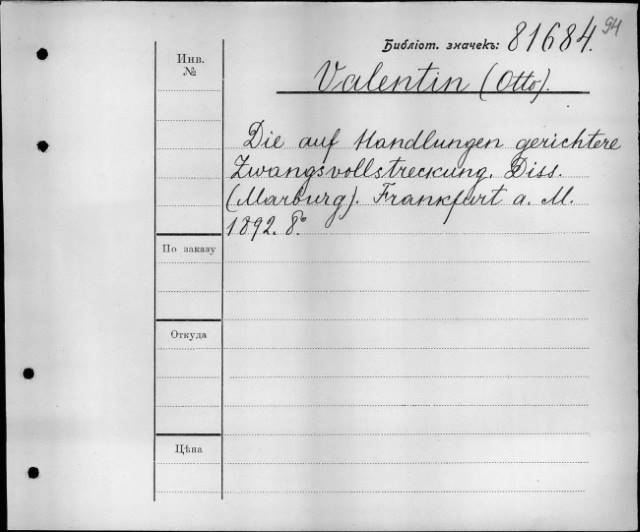 94
Библіот. значекъ: 81684.
Инв.
№
Valentin (Otto).
Die auf Handlungen gerichtere
Zwangsvollstreckung. Diss.
(Marburg). Frankfurt a. M.
1892. 8°.
По заказу
Откуда
Цѣна